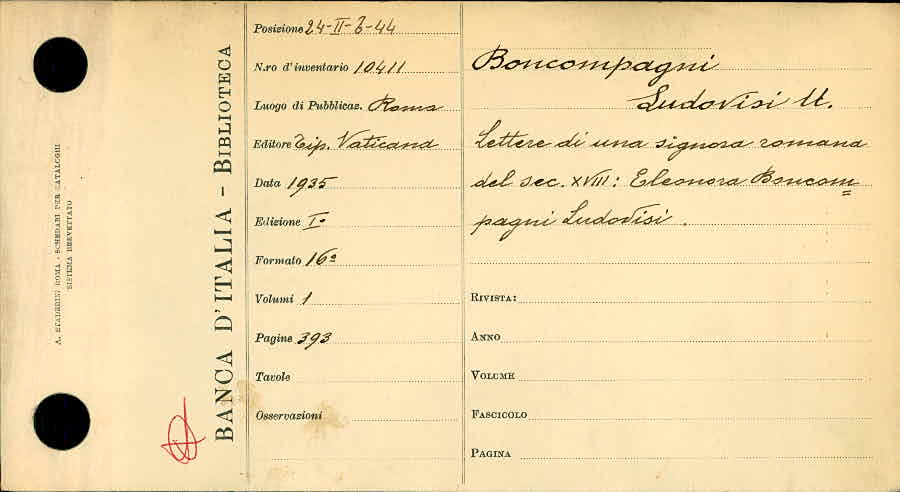 A. STADERINI ROMA - SCHEDARI PER CATALOGHI
SISTEMA BREVETTATO
BANCA D'ITALIA – BIBLIOTECA
Posizione 24-II-b-44
N.ro d'inventario 10411
Luogo di Pubblicaz. Roma
Editore Tip. Vaticana
Data 1935
Edizione Iª
Formato 16º
Volumi 1
Pagine 393
Tavole
Osservazioni
Boncompagni
Ludovisi U.
Lettere di una signora romana
del sec. XVIII: Eleonora Boncom=
pagni Ludovisi.
RIVISTA:
ANNO
VOLUME
FASCICOLO
PAGINA